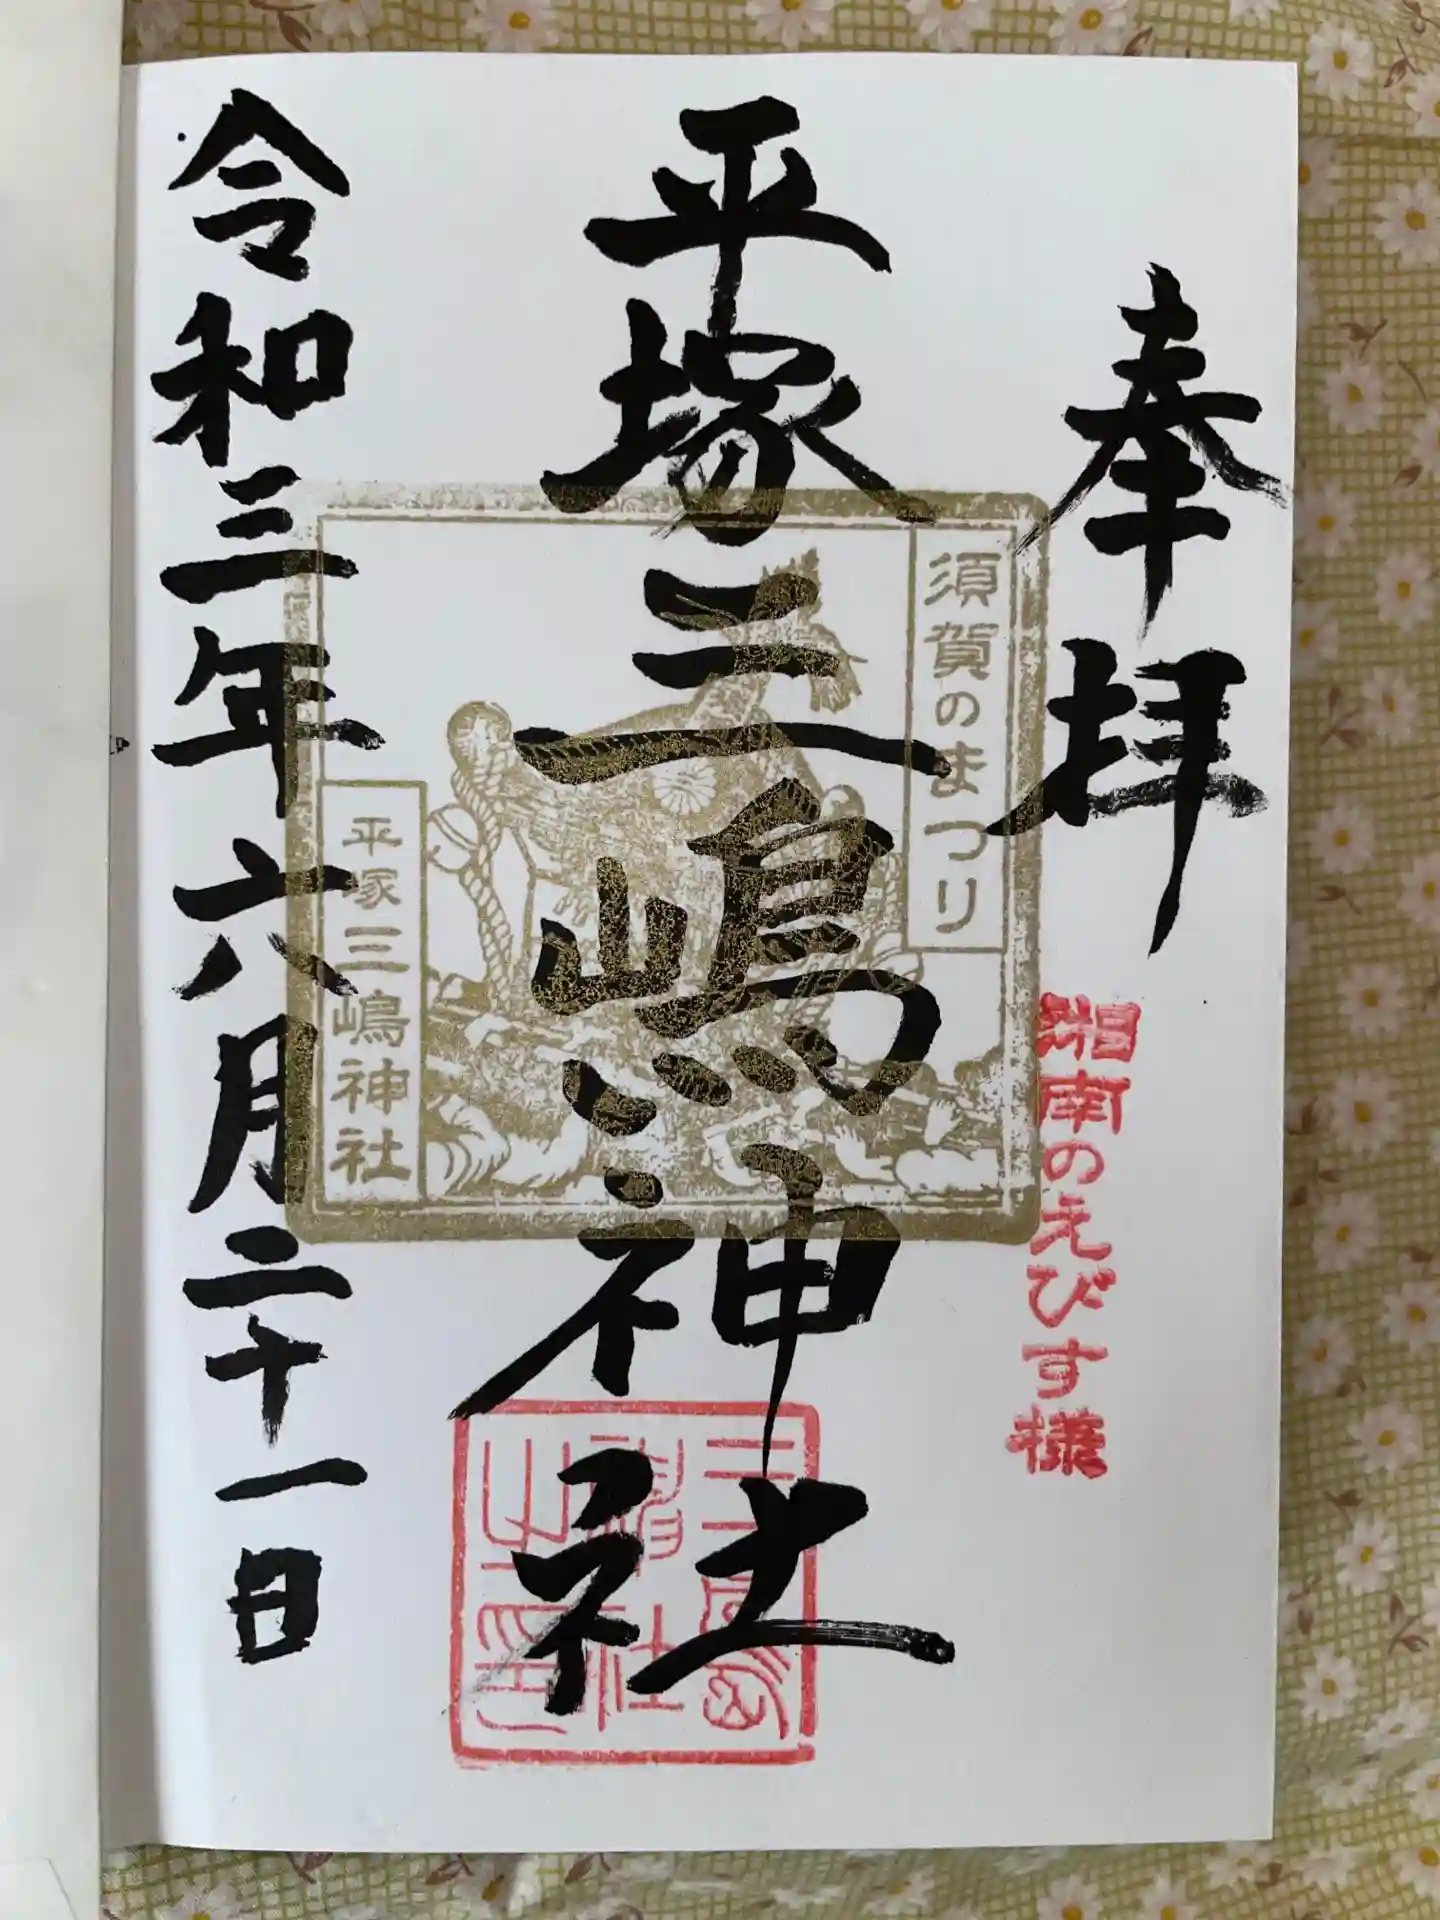 奉拝
湘南のえびす様
須賀のまつり
平塚三嶋神社
平塚三嶋神社
三嶋
神社
之印
令和三年六月二十一日